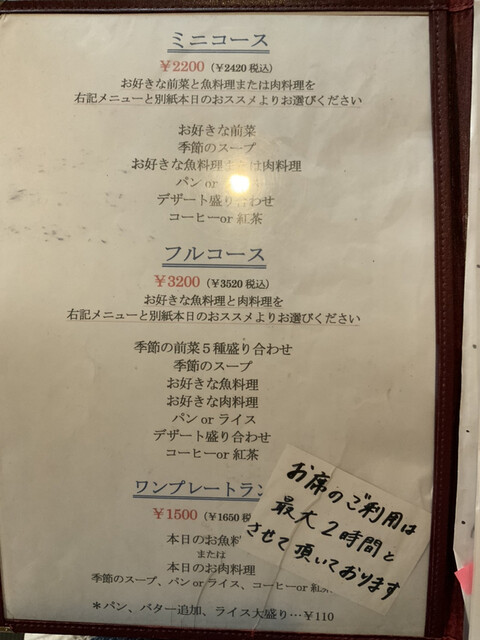 ミニコース
¥2200（¥2420税込）
お好きな前菜と魚料理または肉料理を
右記メニューと別紙本日のおススメよりお選びください
お好きな前菜
季節のスープ
お好きな魚料理または肉料理
パン or
デザート盛り合わせ
コーヒーor 紅茶
フルコース
¥3200（¥3520税込）
お好きな魚料理と肉料理を
右記メニューと別紙本日のおススメよりお選びください
季節の前菜５種盛り合わせ
季節のスープ
お好きな魚料理
お好きな肉料理
パン or ライス
デザート盛り合わせ
コーヒーor 紅茶
ワンプレートラン
¥1500（¥1650税
本日のお魚料
または
本日のお肉料理
季節のスープ、パン or ライス、コーヒーor 紅茶
＊パン、バター追加、ライス大盛り…¥110
お席のご利用は
最大２時間と
させて頂いております